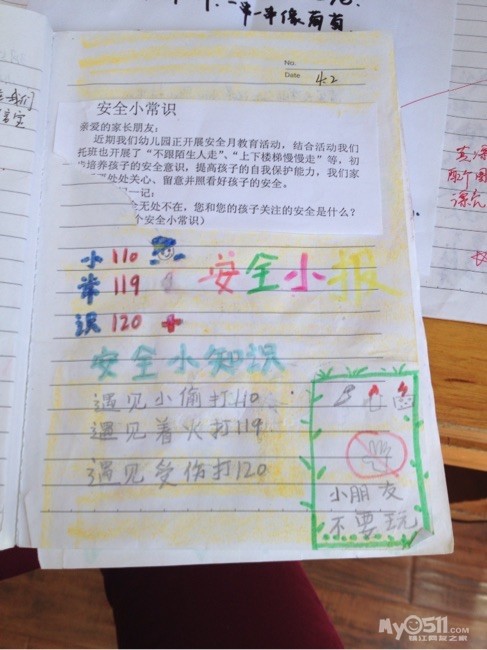 一串一串像葡萄
No.
Date 4.2
我们
安全小常识
亲爱的家长朋友：
近期我们幼儿园正开展安全月教育活动，结合活动我们
托班也开展了“不跟陌生人走”、“上下楼梯慢慢走”等，初
培养孩子的安全意识，提高孩子的自我保护能力，我们家
处处关心、留意并照看好孩子的安全。
一记：
全无处不在，您和您的孩子关注的安全是什么？
个安全小常识）
小 110
常 119
识 120
安全小报
安全小知识
遇见小偷打110
遇见着火打119
遇见受伤打120
小朋友
不要玩
My0511.COM
镇江网友之家